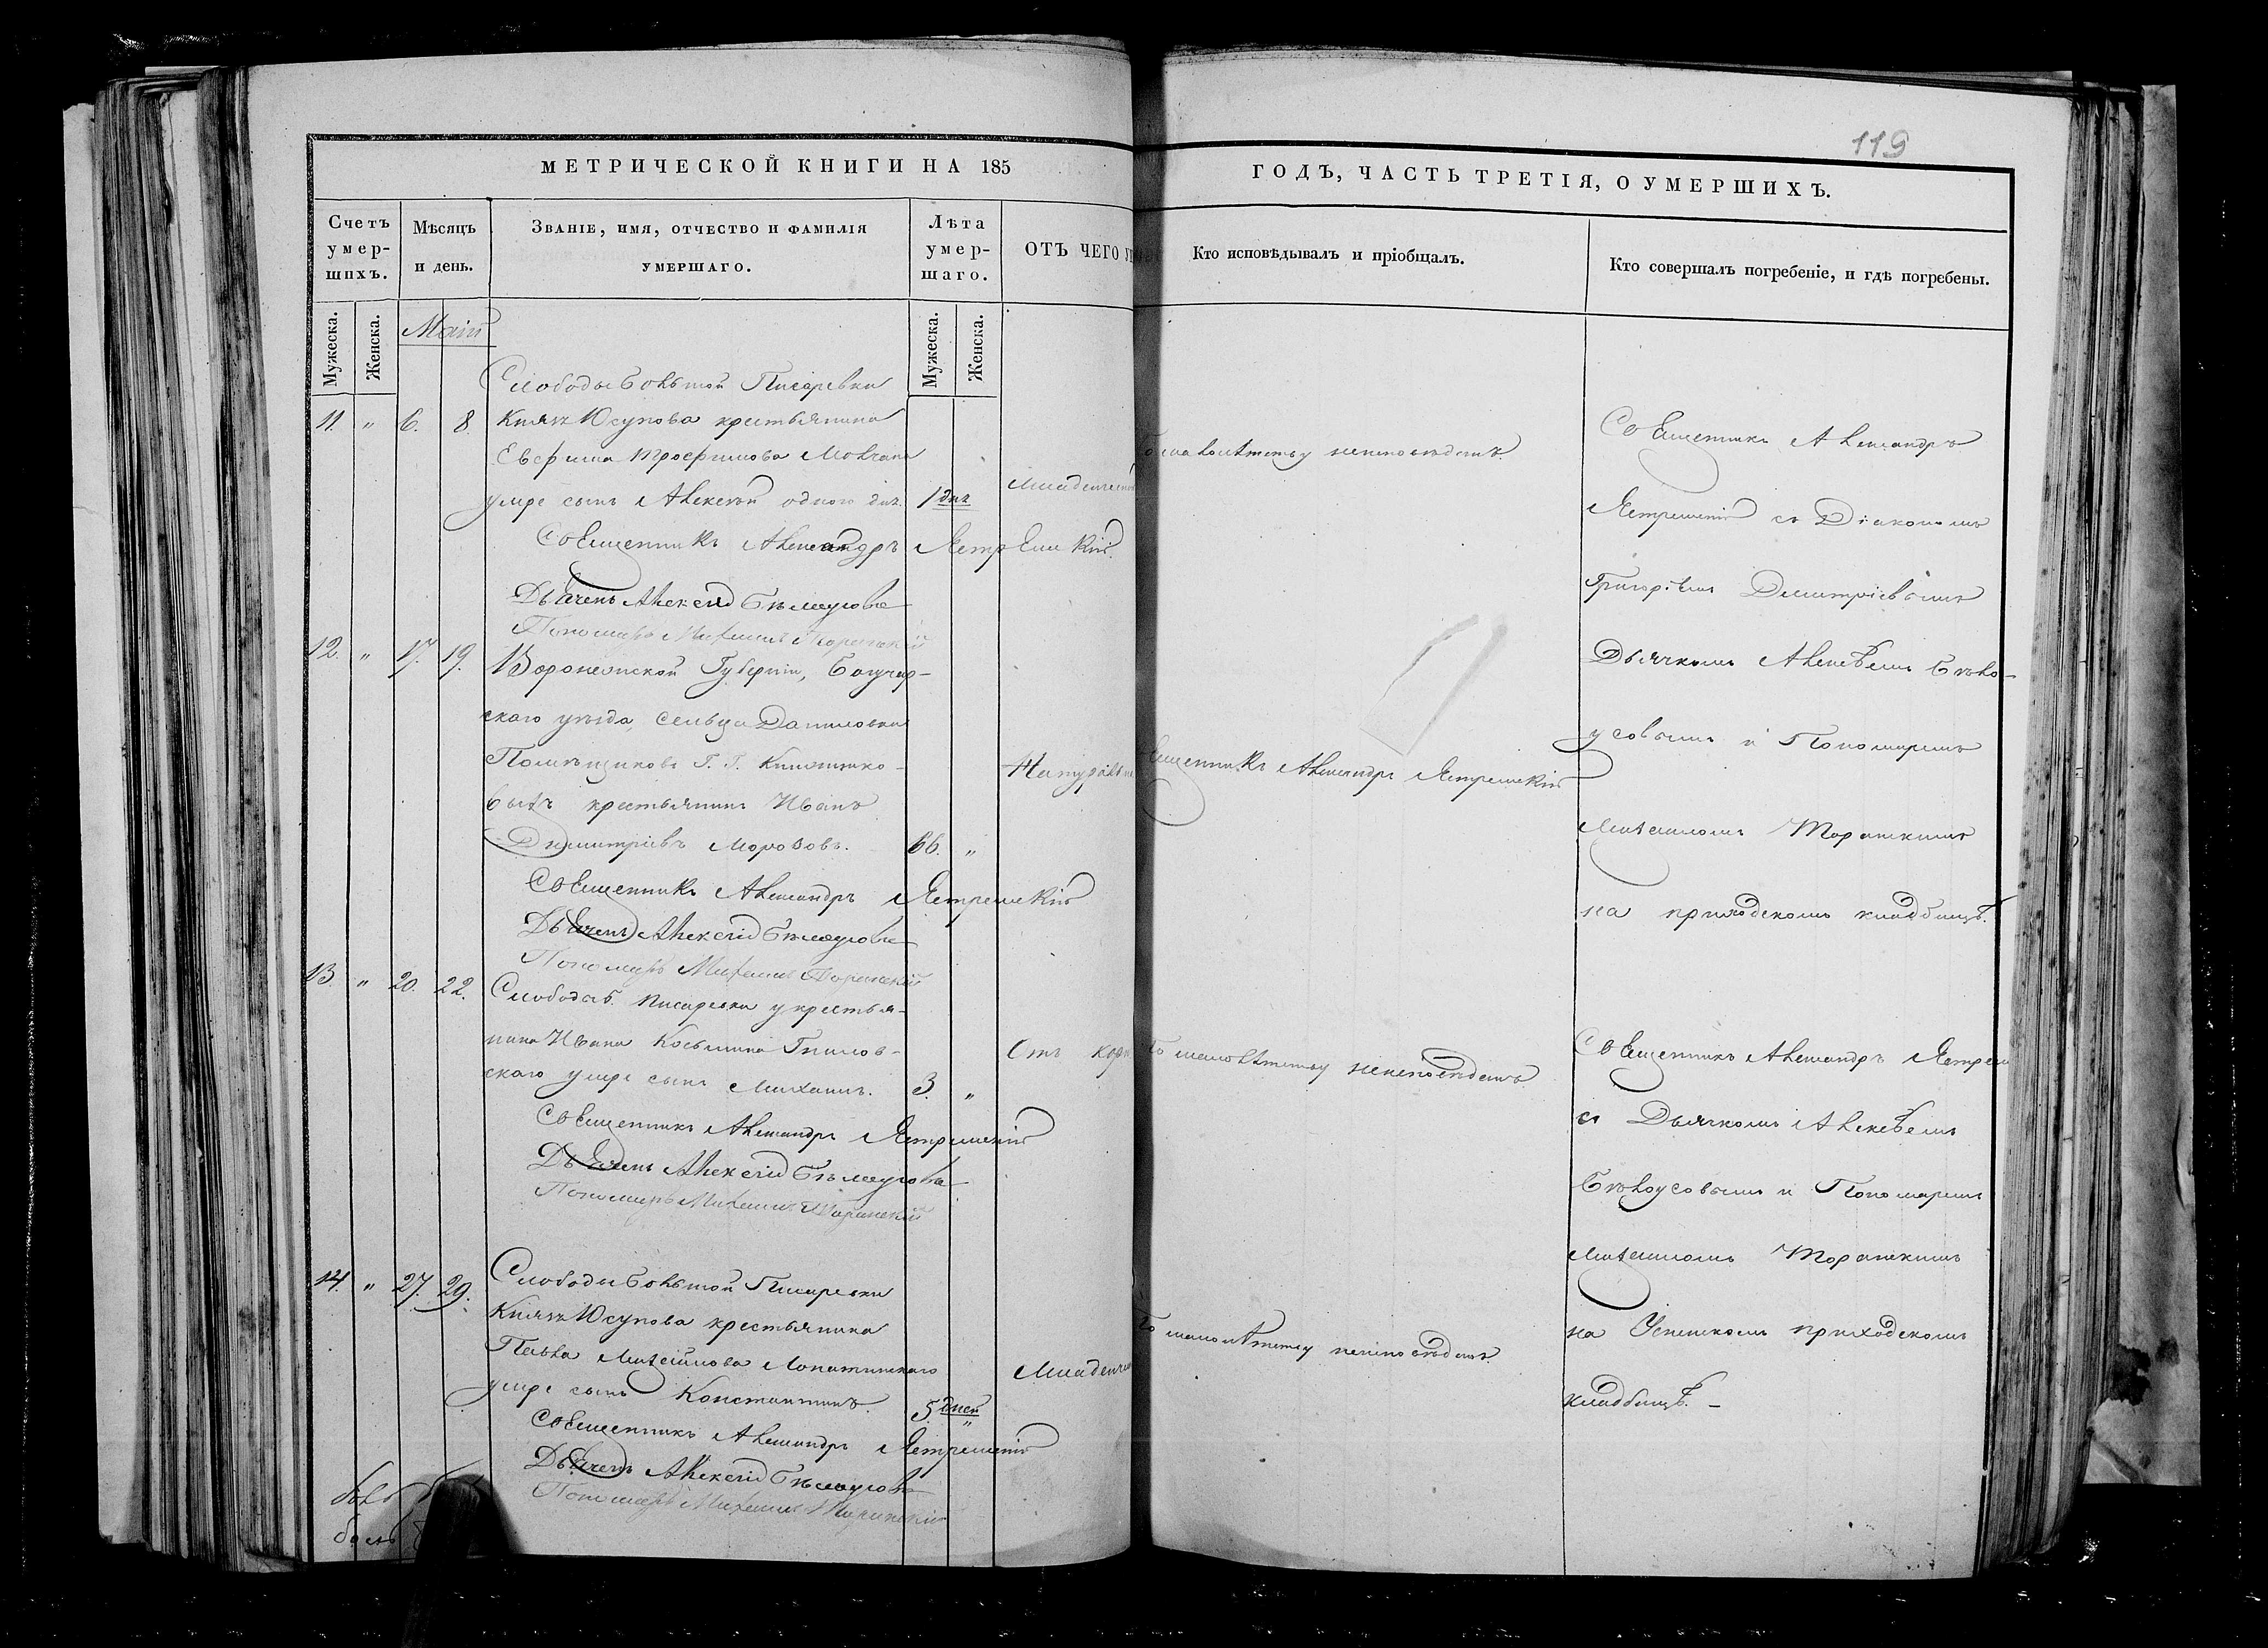 119
МЕТРИЧЕСКОЙ КНИГИ НА 185
ГОДЪ, ЧАСТЬ ТРЕТІЯ, О УМЕРШИХЪ.
Счетъ умер-шихъ.
Мѣсяцъ и день.
Званіе, имя, отчество и фамилія умершаго.
Лѣта умер-шаго.
ОТЪ ЧЕГО
Кто исповѣдывалъ и пріобщалъ.
Кто совершалъ погребеніе, и гдѣ погребены.
Мужеска.
Женска.
Маій
Мужеска.
Женска.
Слободы Большой Писаревки
11. " 6. 8. Князя Юсупова крестьянина
Евфима Трофимова Молчана
умре сынъ Алексѣй одного дня. 1 дня
Младенческой
малолѣтству неисповѣданъ.
Священникъ Александръ Ястремскій
Дьячекъ Алексѣй Бѣлоусовъ
Пономарь Михаилъ Торанскій
12. " 17. 19. Воронежской Губерніи, Богучар-
скаго уѣзда, сельца Даниловки
Помѣщиковъ Г. Г.
выхъ крестьянинъ Иванъ
Димитріевъ Морозовъ. 66. "
Натураль
Священникъ Александръ Ястремскій
Священникъ Александръ Ястремскій
Дьячекъ Алексѣй Бѣлоусовъ
Пономарь Михаилъ Торанскій
13. " 20. 22. Слободы Б. Писаревки у крестья-
нина Ивана Косьмина Гнилов-
скаго умре сынъ Михаилъ. 3. "
Отъ кори
По малолѣтству неисповѣданъ
Священникъ Александръ Ястремскій
Дьячекъ Алексѣй Бѣлоусовъ
Пономарь Михаилъ Торанскій
14. " 27. 29. Слободы Большой Писаревки
Князя Юсупова крестьянина
Павла Михайлова Лопатинскаго
умре сынъ Константинъ. 5 дней "
Младенчес
По малолѣтству неисповѣданъ.
Священникъ Александръ Ястремскій
Дьячекъ Алексѣй Бѣлоусовъ
Пономарь Михаилъ Торанскій
Священникъ Александръ
Ястремскій съ Діакономъ
Григоріемъ Димитріевымъ
Дьячкомъ Алексѣемъ Бѣло-
усовымъ и Пономаремъ
Михаиломъ Торанскимъ
на приходскомъ кладбищѣ.
Священникъ Александръ Ястрем
съ Дьячкомъ Алексѣемъ
Бѣлоусовымъ и Пономаремъ
Михаиломъ Торанскимъ
на Успенскомъ приходскомъ
кладбищѣ. –